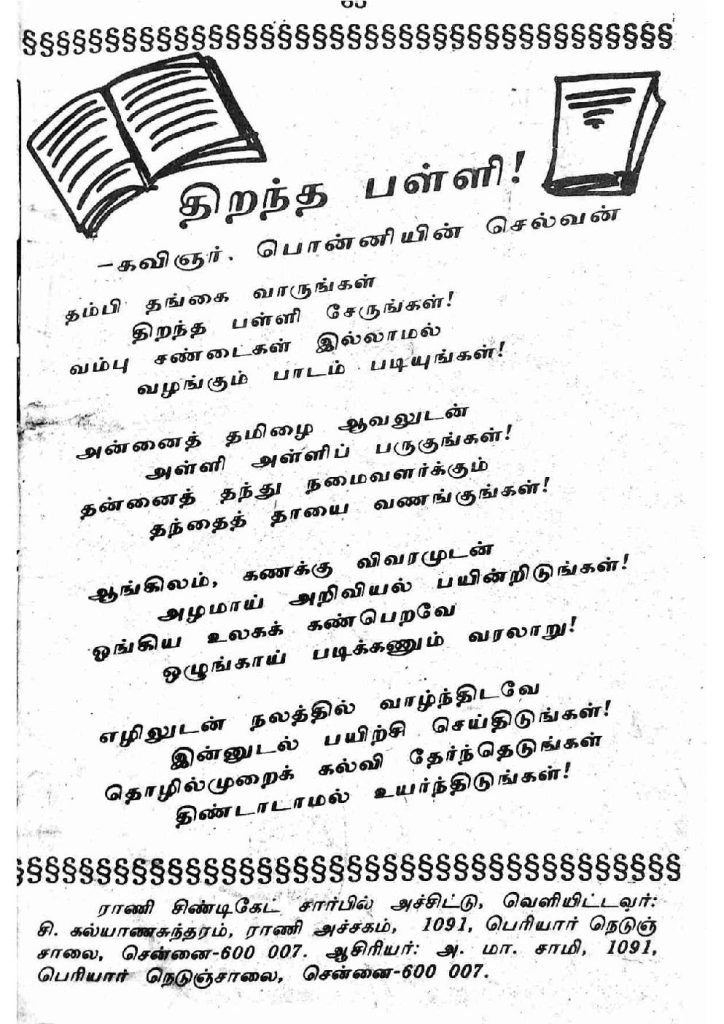 65
திறந்த பள்ளி!
-கவிஞர். பொன்னியின் செல்வன்
தம்பி தங்கை வாருங்கள்
திறந்த பள்ளி சேருங்கள்!
வம்பு சண்டைகள் இல்லாமல்
வழங்கும் பாடம் படியுங்கள்!
அன்னைத் தமிழை ஆவலுடன்
அள்ளி அள்ளிப் பருகுங்கள்!
தன்னைத் தந்து நமைவளர்க்கும்
தந்தைத் தாயை வணங்குங்கள்!
ஆங்கிலம், கணக்கு விவரமுடன்
அழமாய் அறிவியல் பயின்றிடுங்கள்!
ஓங்கிய உலகக் கண்பெறவே
ஒழுங்காய் படிக்கணும் வரலாறு!
எழிலுடன் நலத்தில் வாழ்ந்திடவே
இன்னுடல் பயிற்சி செய்திடுங்கள்!
தொழில்முறைக் கல்வி தேர்ந்தெடுங்கள்
திண்டாடாமல் உயர்ந்திடுங்கள்!
ராணி சிண்டிகேட் சார்பில் அச்சிட்டு, வெளியிட்டவர்:
சி. கல்யாணசுந்தரம், ராணி அச்சகம், 1091, பெரியார் நெடுஞ்
சாலை, சென்னை-600 007. ஆசிரியர்: அ. மா. சாமி, 1091,
பெரியார் நெடுஞ்சாலை, சென்னை-600 007.